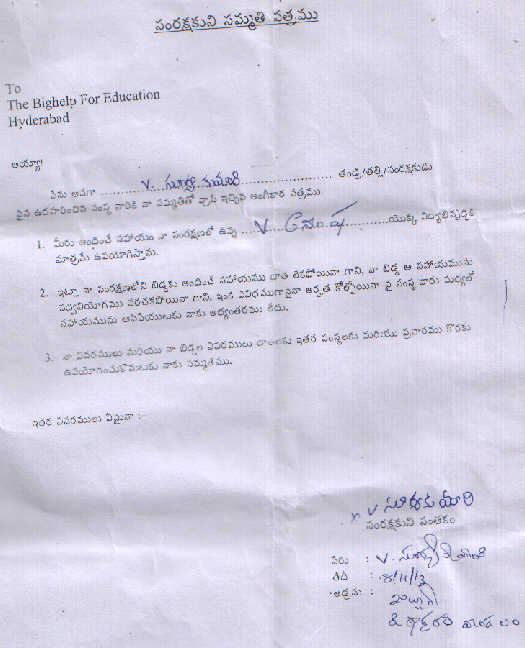 సంరక్షకుని సమ్మతి పత్రము
To
The Bighelp For Education
Hyderabad
అయ్యా
నేను అనగా ..... V. సూర్యకుమారి ..... తండ్రి/తల్లి/సంరక్షకుడు
పైన ఉదహరించిన సంస్థ వారికి నా సమ్మతితో వ్రాసి ఇచ్చిన అంగీకార పత్రము
1. మీరు అందించే సహాయం నా సంరక్షణలో ఉన్న ..... V. ..... యొక్క విద్యాభివృద్ధికి
మాత్రమే ఉపయోగిస్తాను.
2. ఇట్లా నా సంరక్షణలోని బిడ్డకు అందించే సహాయము దాత తెరపోయినా గాని, నా బిడ్డ ఆ సహాయమును
సద్వినియోగము పరచకపోయినా గాని, ఇంక ఏవిధముగానైనా అర్హత కోల్పోయినా పై సంస్థ వారు మధ్యలో
సహాయమును ఆపివేయుటకు నాకు అభ్యంతరము లేదు.
3. నా వివరములు మరియు నా బిడ్డల వివరములు దాతలకు ఇతర సంస్థలకు మరియు ప్రచారము కొరకు
ఉపయోగించుకొనుటకు నాకు సమ్మతము.
ఇతర వివరములు ఏమైనా :-
V సూర్యకుమారి
సంరక్షకుని సంతకం
పేరు : V. సూర్యకుమారి
తేది : 8/11/13
అడ్రసు :